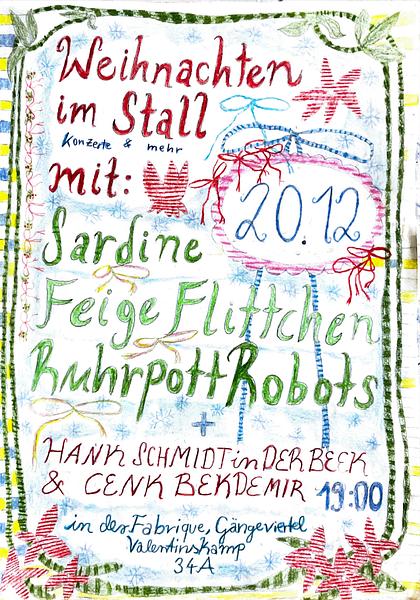 Weihnachten
im Stall
Konzerte & mehr
mit:
20.12
Sardine
Feige Flittchen
Ruhrpott Robots
+
HANK SCHMIDT in DER BEEK
& CENK BEKDEMIR 19:00
in der Fabrique, Gängeviertel
Valentinskamp
34A